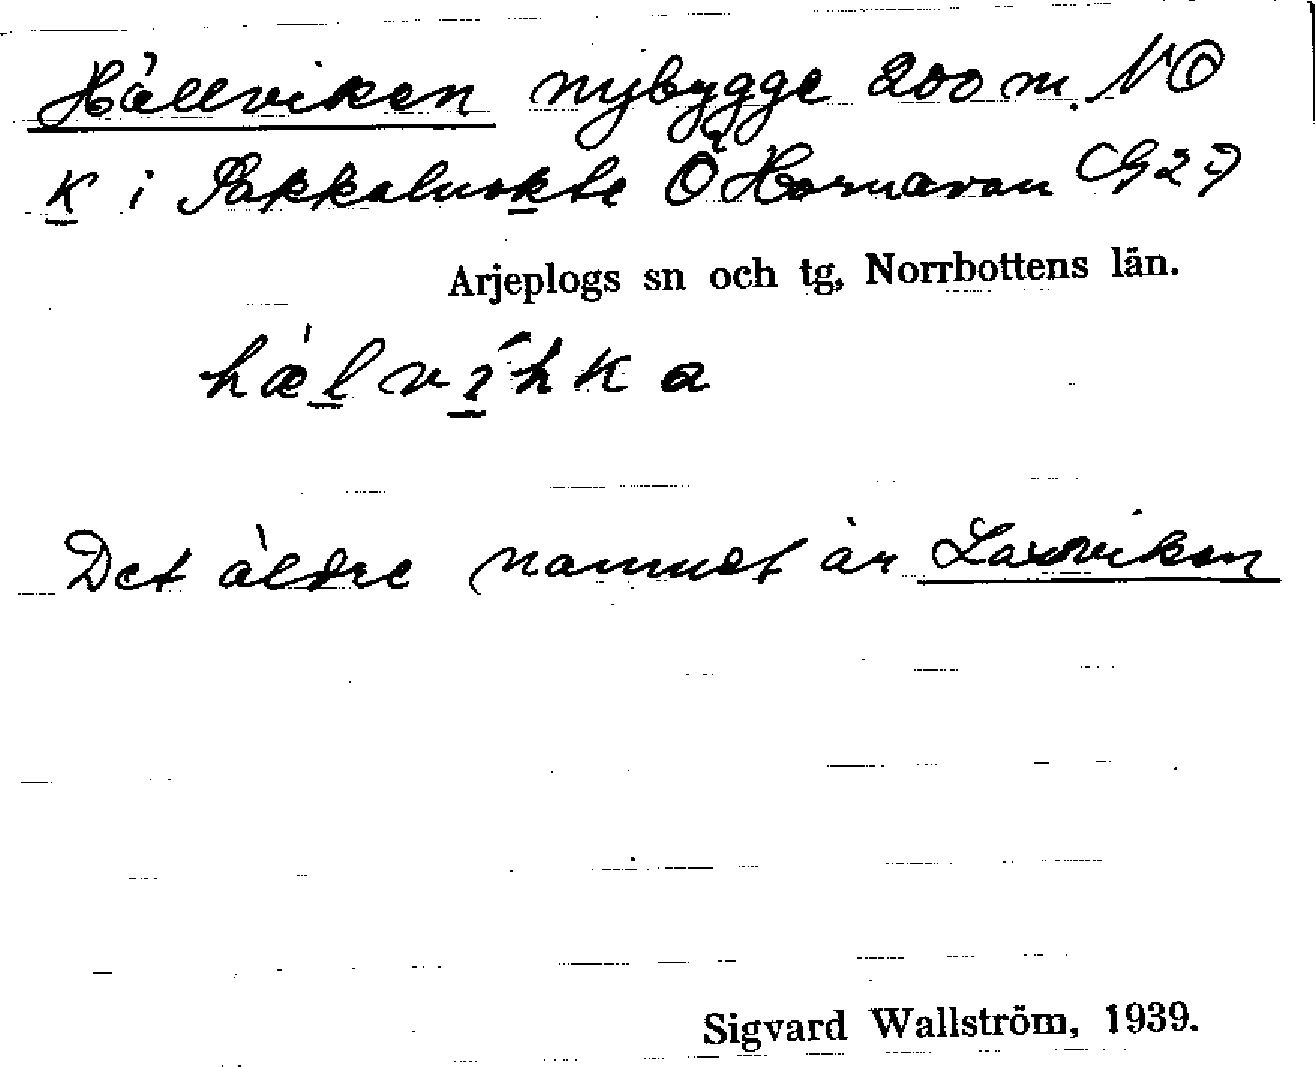 Hällviken nybygge 200 m. NO
K i Pakkaluokte Ö Hornavan G27
Arjeplogs sn och tg, Norrbottens län.
hælvihka
Det äldre namnet är Laxviken
Sigvard Wallström, 1939.